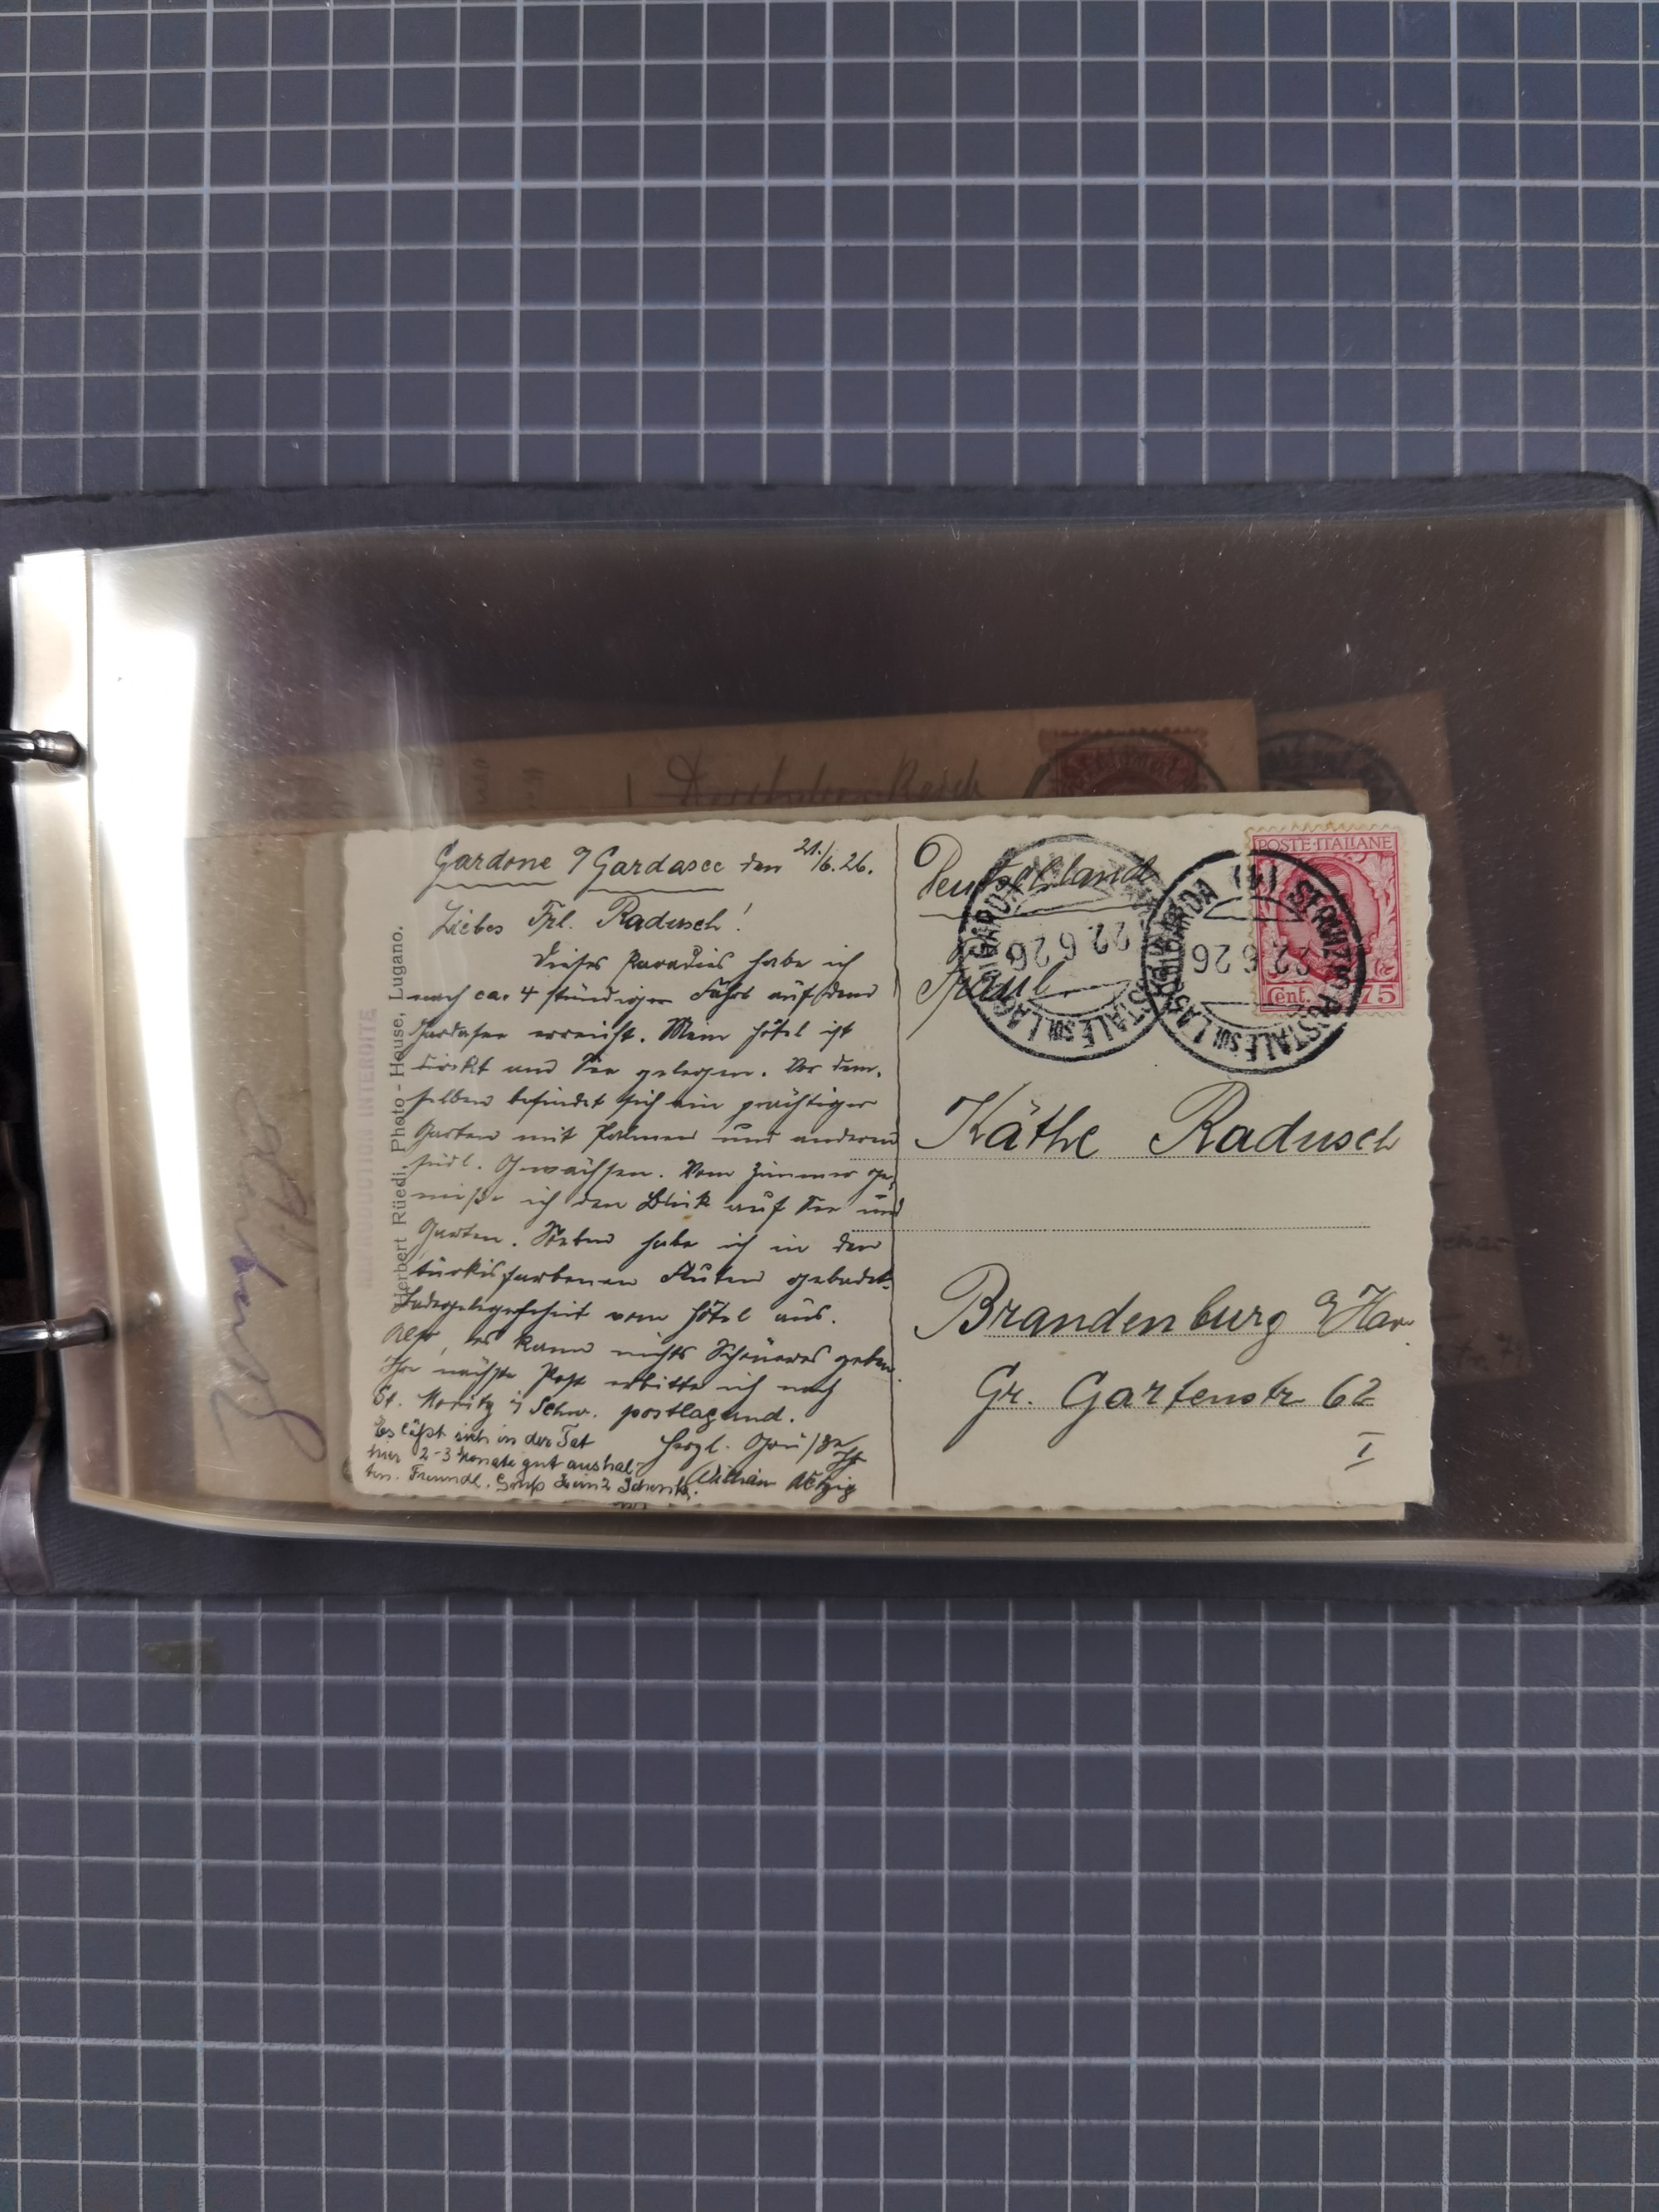 Gardone a/Gardasee den 21./6.26.
Liebes Frl. Radusch!
Dieses Paradies habe ich
nach ca. 4 stündiger Fahrt auf dem
Gardasee erreicht. Mein Hôtel ist
direkt am See gelegen. Vor dem-
selben befindet sich ein prächtiger
Garten mit Palmen und anderen
südl. Gewächsen. Vom Zimmer ge-
nieße ich den Blick auf See und
Garten. Soeben habe ich in den
türkisfarbenen Fluten gebadet.
Badegelegenheit vom Hôtel aus.
Also, es kann nichts Schöneres geben.
Ihre nächste Post erbitte ich nach
St. Moritz i/Schw. postlagernd.
Herzl. Grüße
Ihr
Es läßt sich in der Tat
hier 2-3 Monate gut aushal-
ten. Freundl. Gruß Heinz
Herbert Rüedi, Photo-House, Lugano.
REPRODUCTION INTERDITE
Deutschland
Frául.
Käthe Radusch
Brandenburg a/Hav.
Gr. Gartenstr 62
I
POSTE ITALIANE
Cent. 75
SERVIZIO POSTALE SUL LAGO DI GARDA (4)
22 6 26
22 6 26
Deutsches Reich